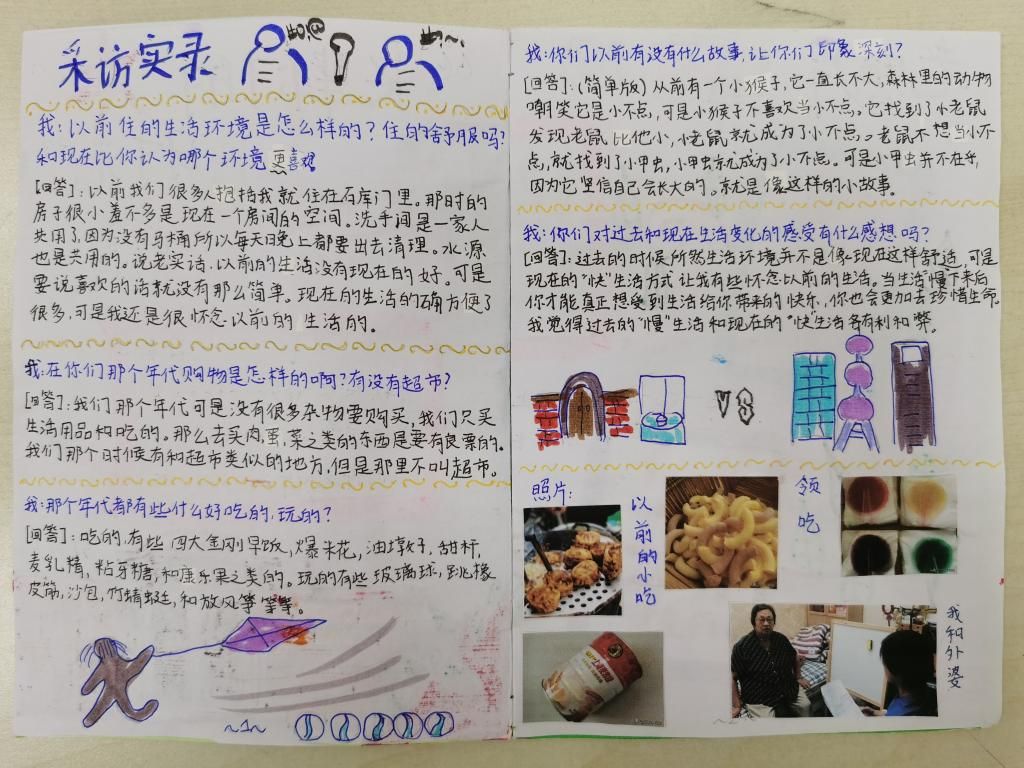 采访实录
我:以前住的生活环境是怎么样的？住的舒服吗?
和现在比你认为哪个环境更喜欢
[回答]:以前我们很多人抱括我就住在石库门里。那时的
房子很小差不多是现在一个房间的空间。洗手间是一家人
共用了,因为没有马桶所以每天晚上都要出去清理。水源
也是共用的。说老实话,以前的生活没有现在的好。可是
要说喜欢的话就没有那么简单。现在的生活的确方便了
很多,可是我还是很怀念以前的生活的。
我:在你们那个年代购物是怎样的啊?有没有超市?
[回答]:我们那个年代可是没有很多杂物要购买,我们只买
生活用品和吃的。那么去买肉,蛋,菜之类的东西是要有良票的。
我们那个时候有和超市类似的地方,但是那里不叫超市。
我:那个年代都有些什么好吃的,玩的?
[回答]:吃的,有些 四大金刚早饭,爆米花,油墩子,甜杆,
麦乳精,粘牙糖,和康乐果之类的。玩的有些玻璃球,跳橡
皮筋,沙包,竹蜻蜓,和放风筝等等。
~1~
我:你们以前有没有什么故事,让你们印象深刻?
[回答]:(简单版)从前有一个小猴子,它一直长不大,森林里的动物
嘲笑它是小不点,可是小猴子不喜欢当小不点。它找到了小老鼠
发现老鼠比他小,小老鼠就成为了小不点。老鼠不想当小不
点,就找到了小甲虫,小甲虫就成为了小不点。可是小甲虫并不在乎,
因为它坚信自己会长大的。就是像这样的小故事。
我:你们对过去和现在生活变化的感受有什么感想吗?
[回答]:过去的时候所然生活环境并不是像现在这样舒适,可是
现在的"快"生活方式让我有些怀念以前的生活。当生活慢下来后
你才能真正想受到生活给你带来的快乐,你也会更加去珍惜生命。
我觉得过去的"慢"生活和现在的"快"生活各有利和弊。
VS
照片:
以前的小吃
领吃
我和外婆